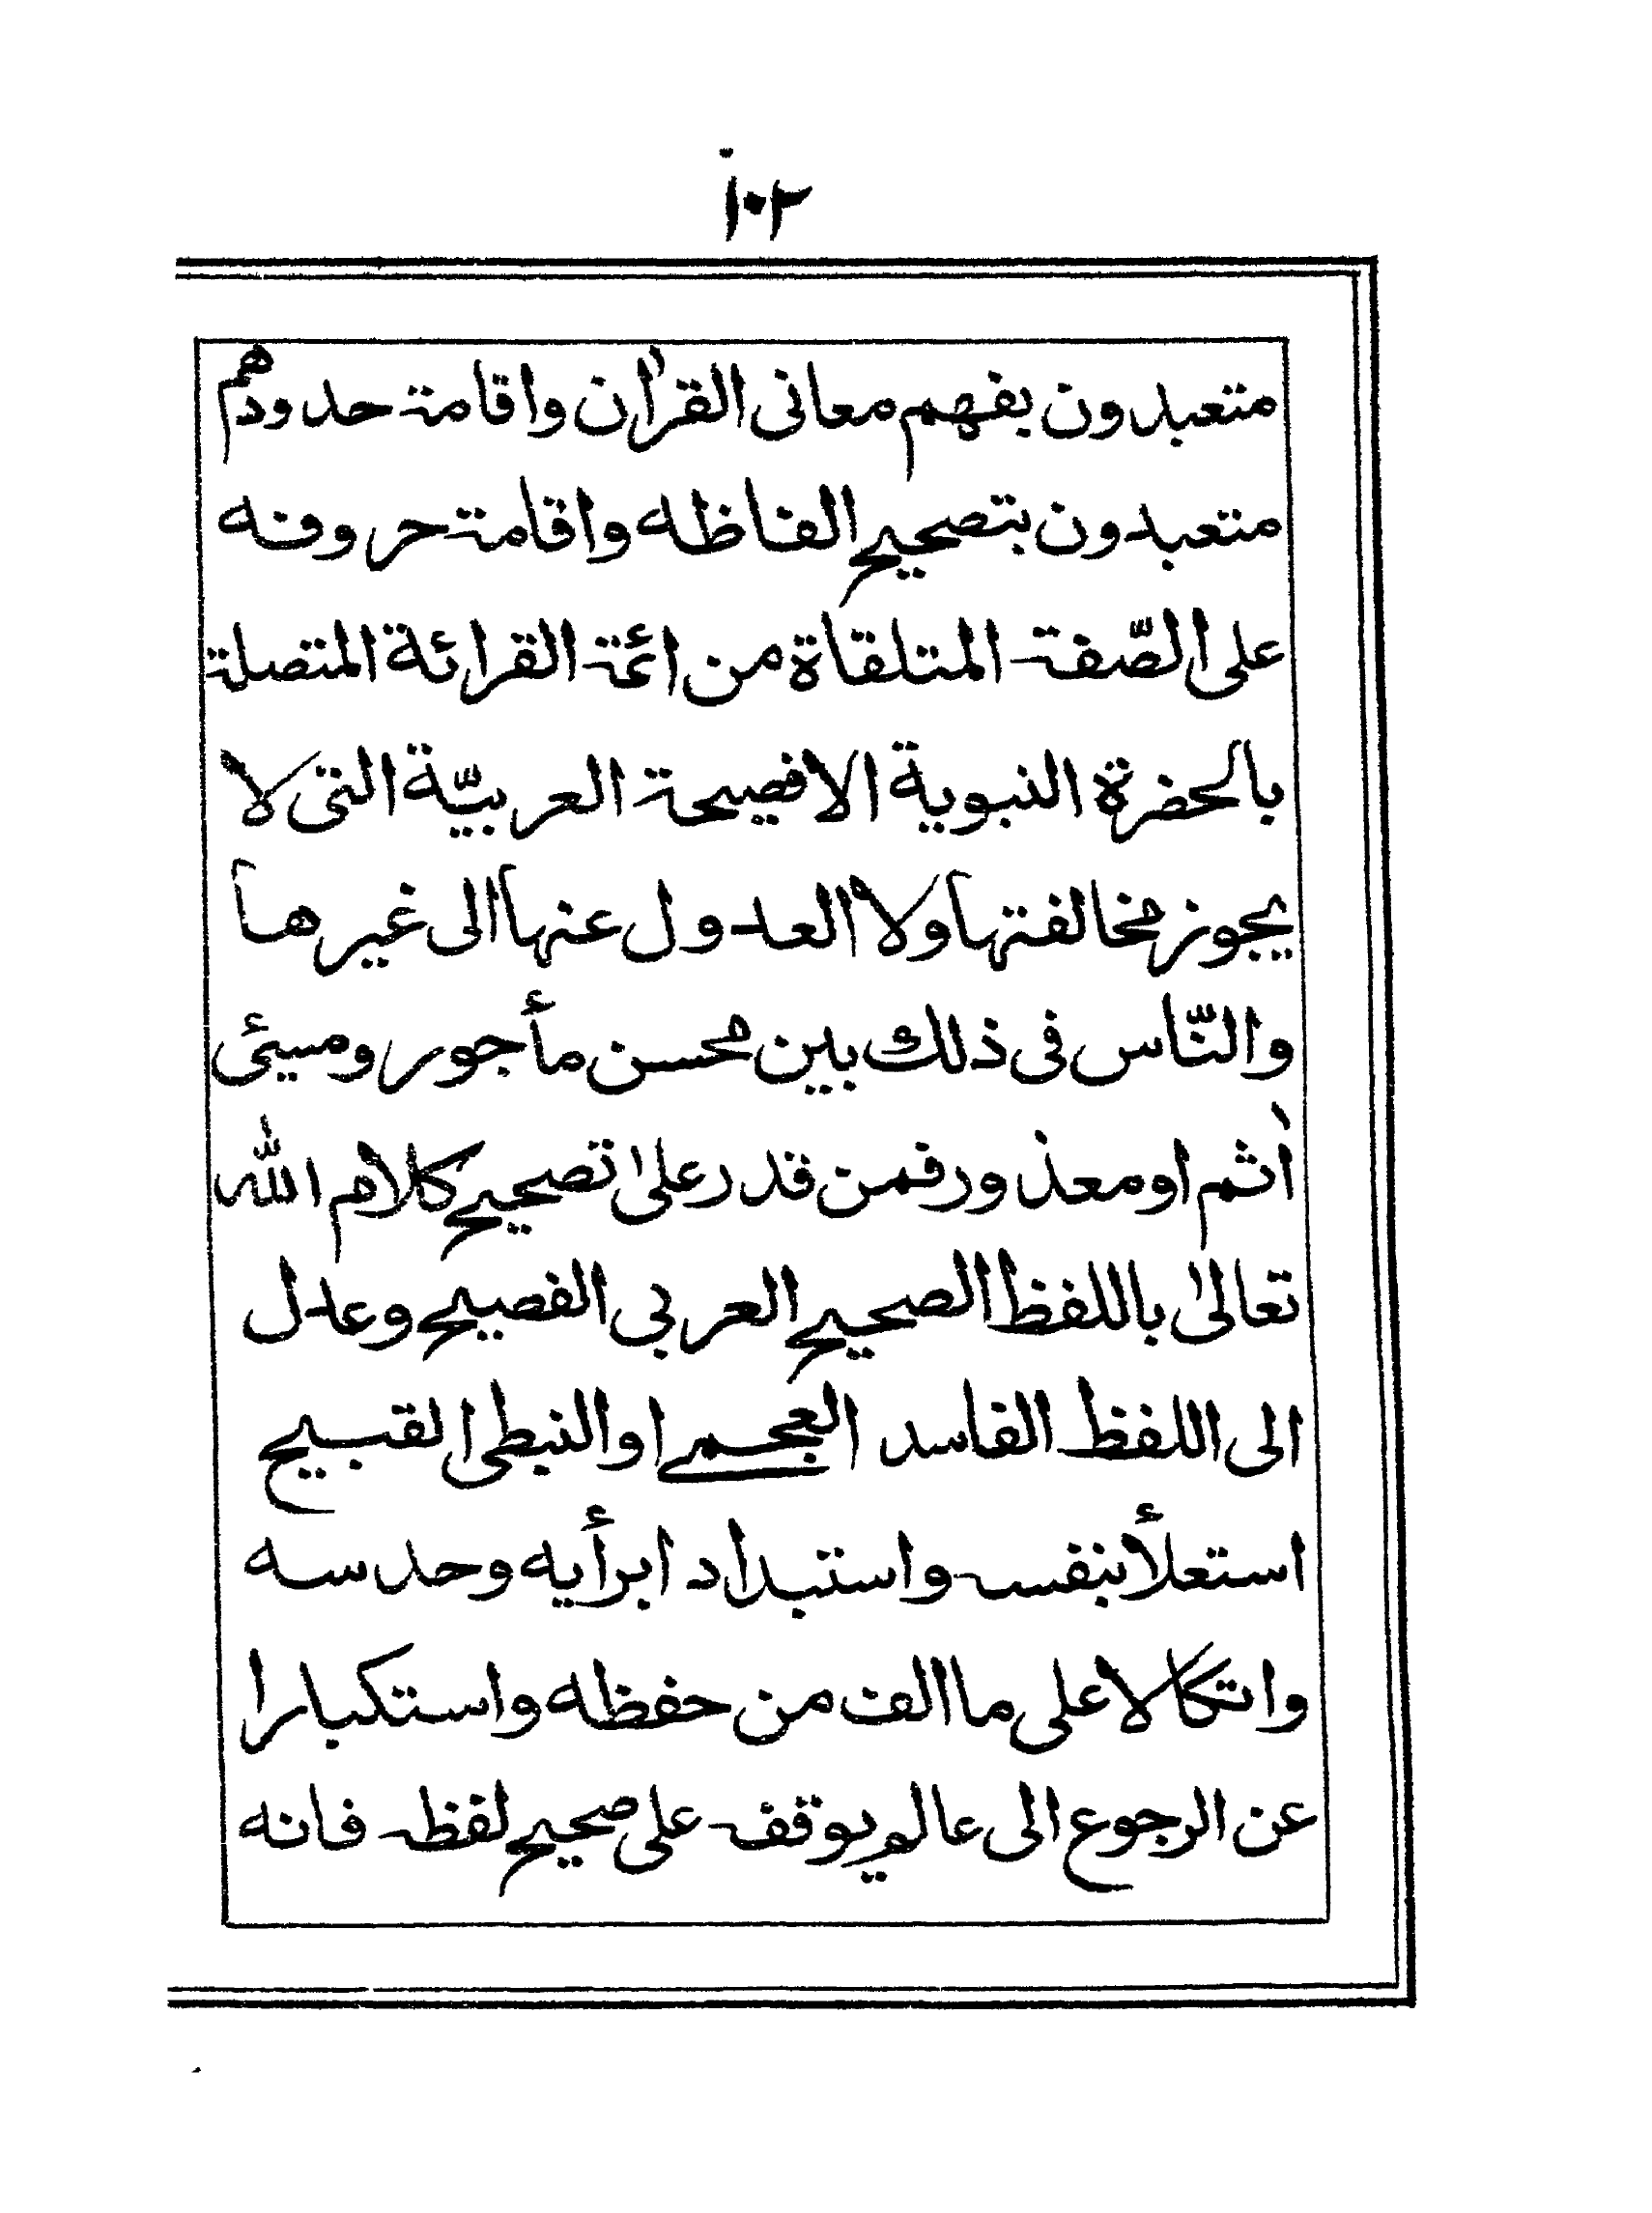 ١٠٢
متعبدون بفهم معانی القرآن واقامة حدوده هم
متعبدون بتصحیح الفاظه واقامة حروفه
علی الصّفة المتلقاة من ائمة القرائة المتصلة
بالحضرة النبویة الافصیحة العربیّة التی لا
یجوز مخالفتها ولا العدول عنها الی غیرها
والنّاس فی ذلك بین محسن مأجور ومسیئی
اٰثم او معذور فمن قدر علیٰ تصحیح کلام الله
تعالیٰ باللفظ الصحیح العربی الفصیح وعدل
الی اللفظ الفاسد العجمی او النبطی القبیح
استعلأ بنفسه واستبداد ابرأیه وحدسه
واتکالا علی ما الف من حفظه واستکبارا
عن الرجوع الی عالم یوقفه علی صحیح لفظه فانه